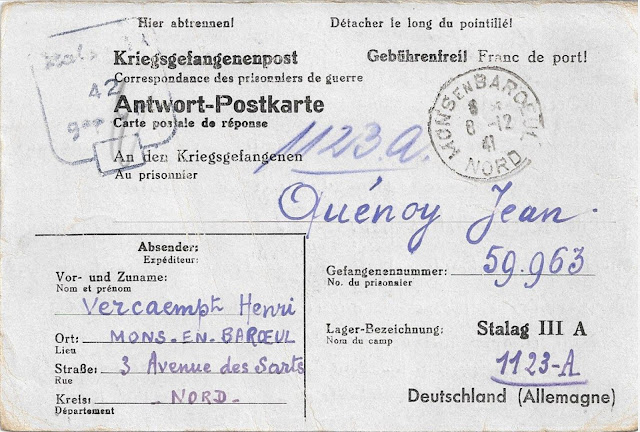 Hier abtrennen! Détacher le long du pointillé!
Kriegsgefangenenpost Gebührenfrei! Franc de port!
Correspondance des prisonniers de guerre
Antwort-Postkarte
Carte postale de réponse
42
MONS EN BAROEUL
8 -12
41
NORD
An den Kriegsgefangenen 1123.A.
Au prisonnier
Quénoy Jean.
Absender:
Expéditeur:
Vor- und Zuname:
Nom et prénom
Vercaempt Henri
Ort: MONS-EN-BARŒUL
Lieu
Straße: 3 Avenue des Sarts
Rue
Kreis: - NORD -
Département
Gefangenennummer: 59.963
No. du prisonnier
Lager-Bezeichnung: Stalag III A
Nom du camp
1123-A
Deutschland (Allemagne)